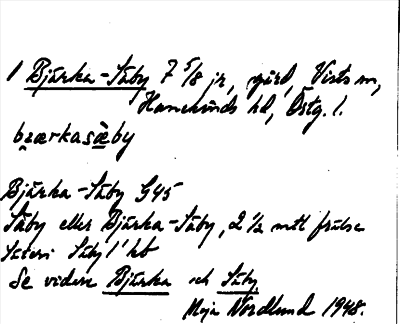 1 Bjärka-Säby 7 5/8 jr, gård, Vists sn,
Hanekinds hd, Östg. l.
bɪærkasæ̀by
Bjärka-Säby G45
Säby eller Bjärka-Säby, 2 1/2 mtl frälse
Säteri Säby 1' hb
Se vidare Bjärka och Säby
Maja Nordlund 1948.